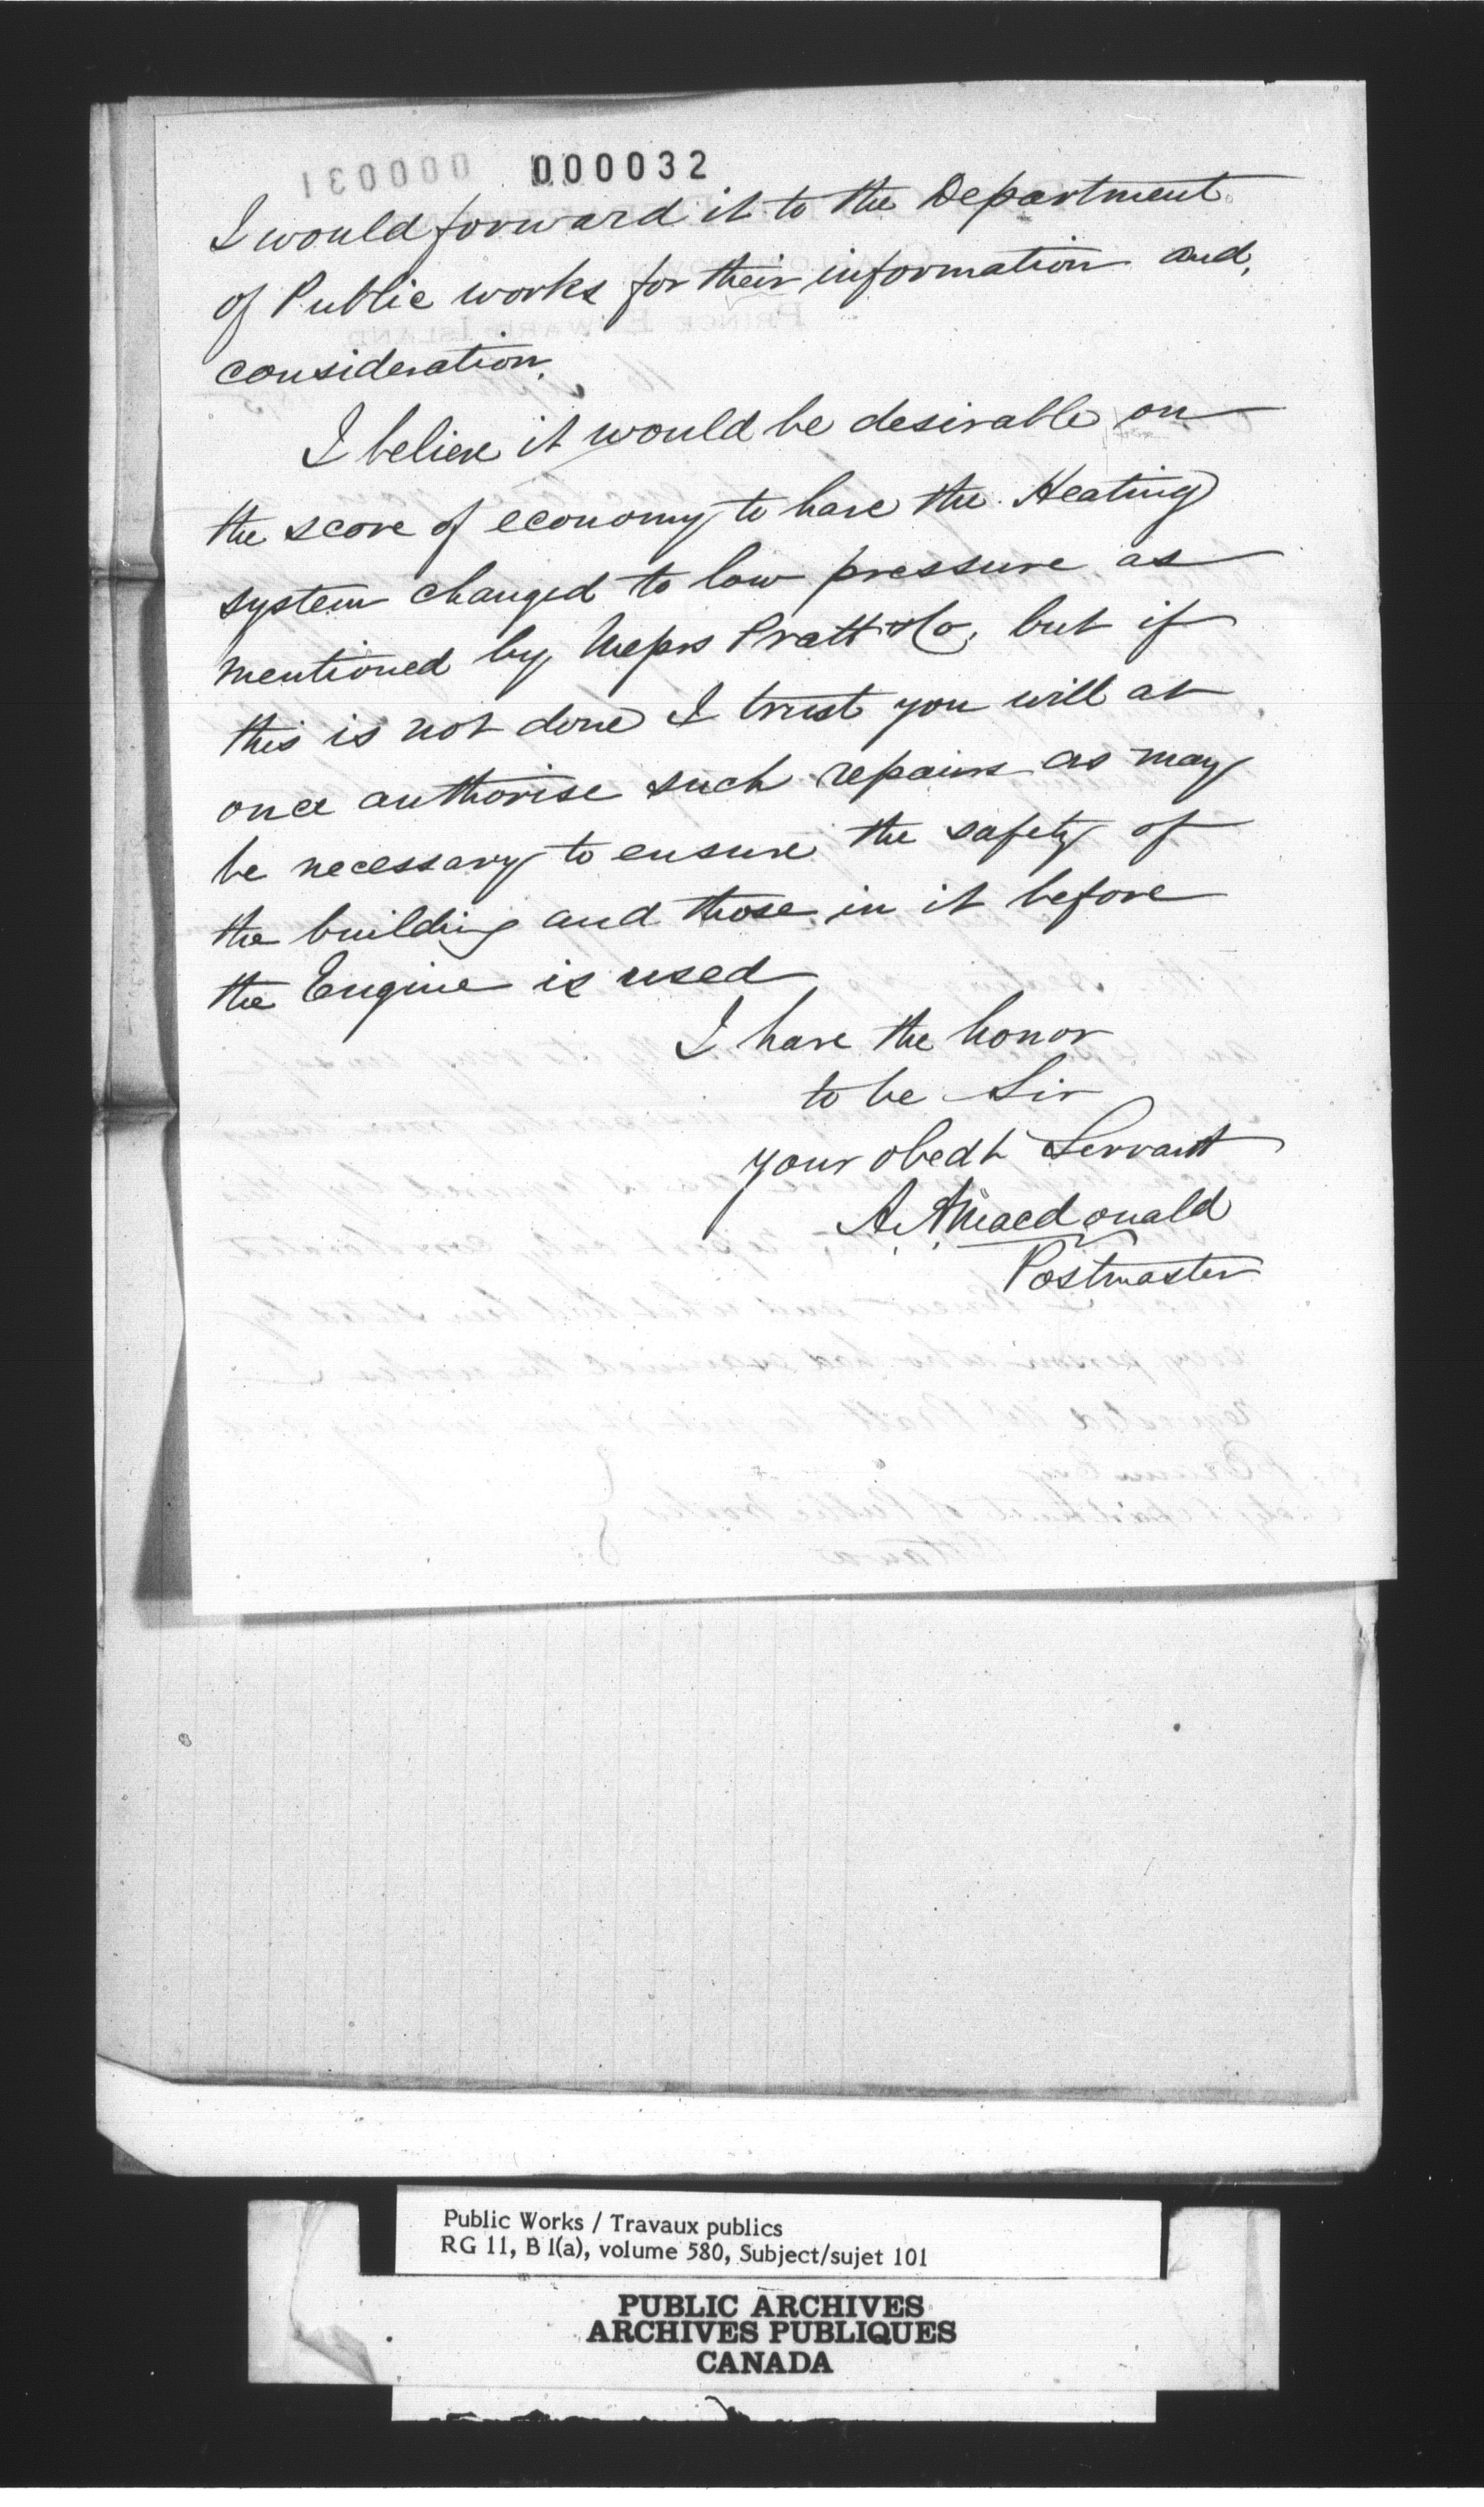 000032
I would forward it to the Department
of Public works for their information and,
consideration.
I believe it would be desirable on
the score of economy to have the Heating
system changed to low pressure as
mentioned by Messrs Pratt & Co, but if
this is not done I trust you will at
once authorise such repairs as may
be necessary to ensure the safety of
the building and those in it before
the Engine is used
I have the honor
to be Sir
your obedt Servant
A. A. Macdonald
Postmaster
Public Works / Travaux publics
RG 11, B 1(a), volume 580, Subject/sujet 101
PUBLIC ARCHIVES
ARCHIVES PUBLIQUES
CANADA